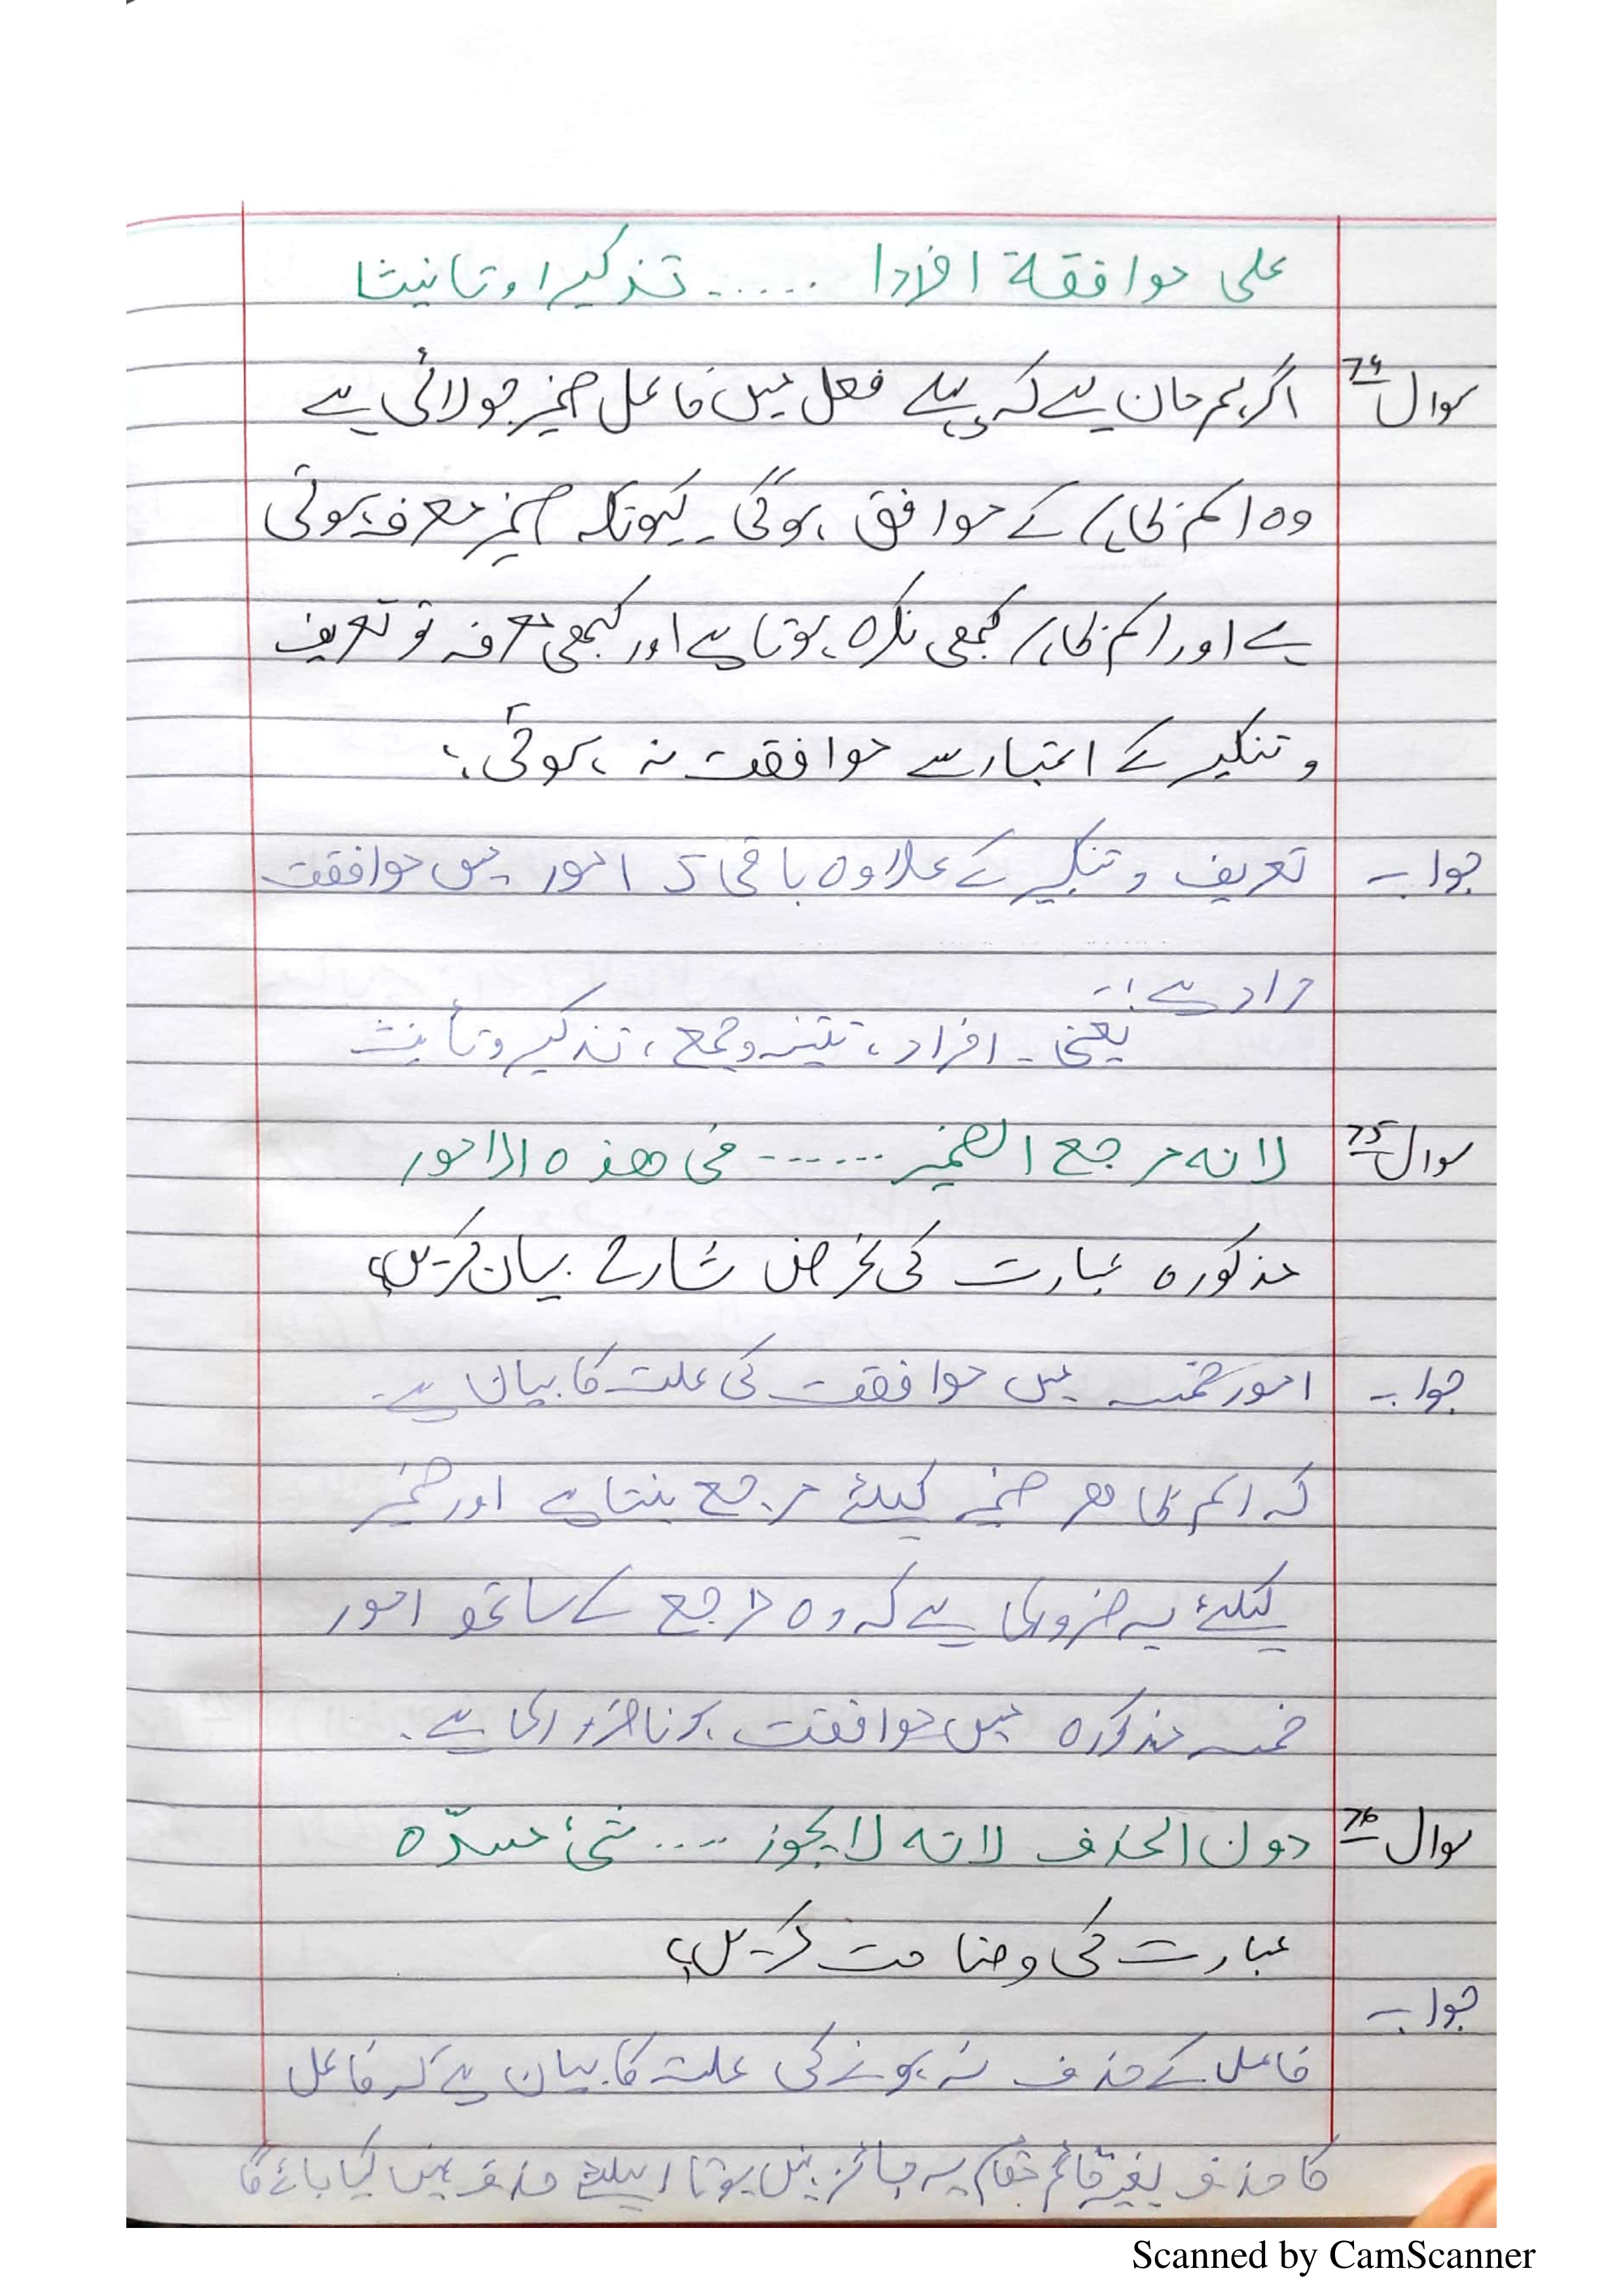 علی موافقة افرادا ..... تذکیرا و تانیثا
سوال 74 اگر ہم مان لے کہ پہلے فعل میں فاعل ضمیر جو لائی ہے
وہ اسم ظاہر کے موافق ہوگی۔ کیونکہ ضمیر معرفہ ہوتی
ہے اور اسم ظاہر کبھی نکرہ ہوتا ہے اور کبھی معرفہ تو تعریف
و تنکیر کے اعتبار سے موافقت نہ ہوئی؟
جواب۔ تعریف و تنکیر کے علاوہ باقی 5 امور میں موافقت
مراد ہے :-
یعنی۔ افراد، تثنیہ و جمع، تذکیر و تأنیث
سوال 75 لانه مرجع الضمیر ...... فی هذه الامور
مذکورہ عبارت کی غرض شارح بیان کریں؟
جواب۔ امور خمسہ میں موافقت کی علت کا بیان ہے۔
کہ اسم ظاھر ضمیر کیلئے مرجع بنتا ہے اور ضمیر
کیلئے یہ ضروری ہے کہ وہ مرجع کے ساتھ امور
خمسہ مذکورہ میں موافقت ہونا ضروری ہے۔
سوال 76 دون الحذف لانه لا یجوز .... شیٔ مسدّہ
عبارت کی وضاحت کریں؟
جواب۔
فاعل کے حذف نہ ہونے کی علت کا بیان ہے کہ فاعل
کا حذف بغیر قائم مقام یہ جائز نہیں ہوتا اسیلئے حذف نہیں کیا جائے گا
Scanned by CamScanner